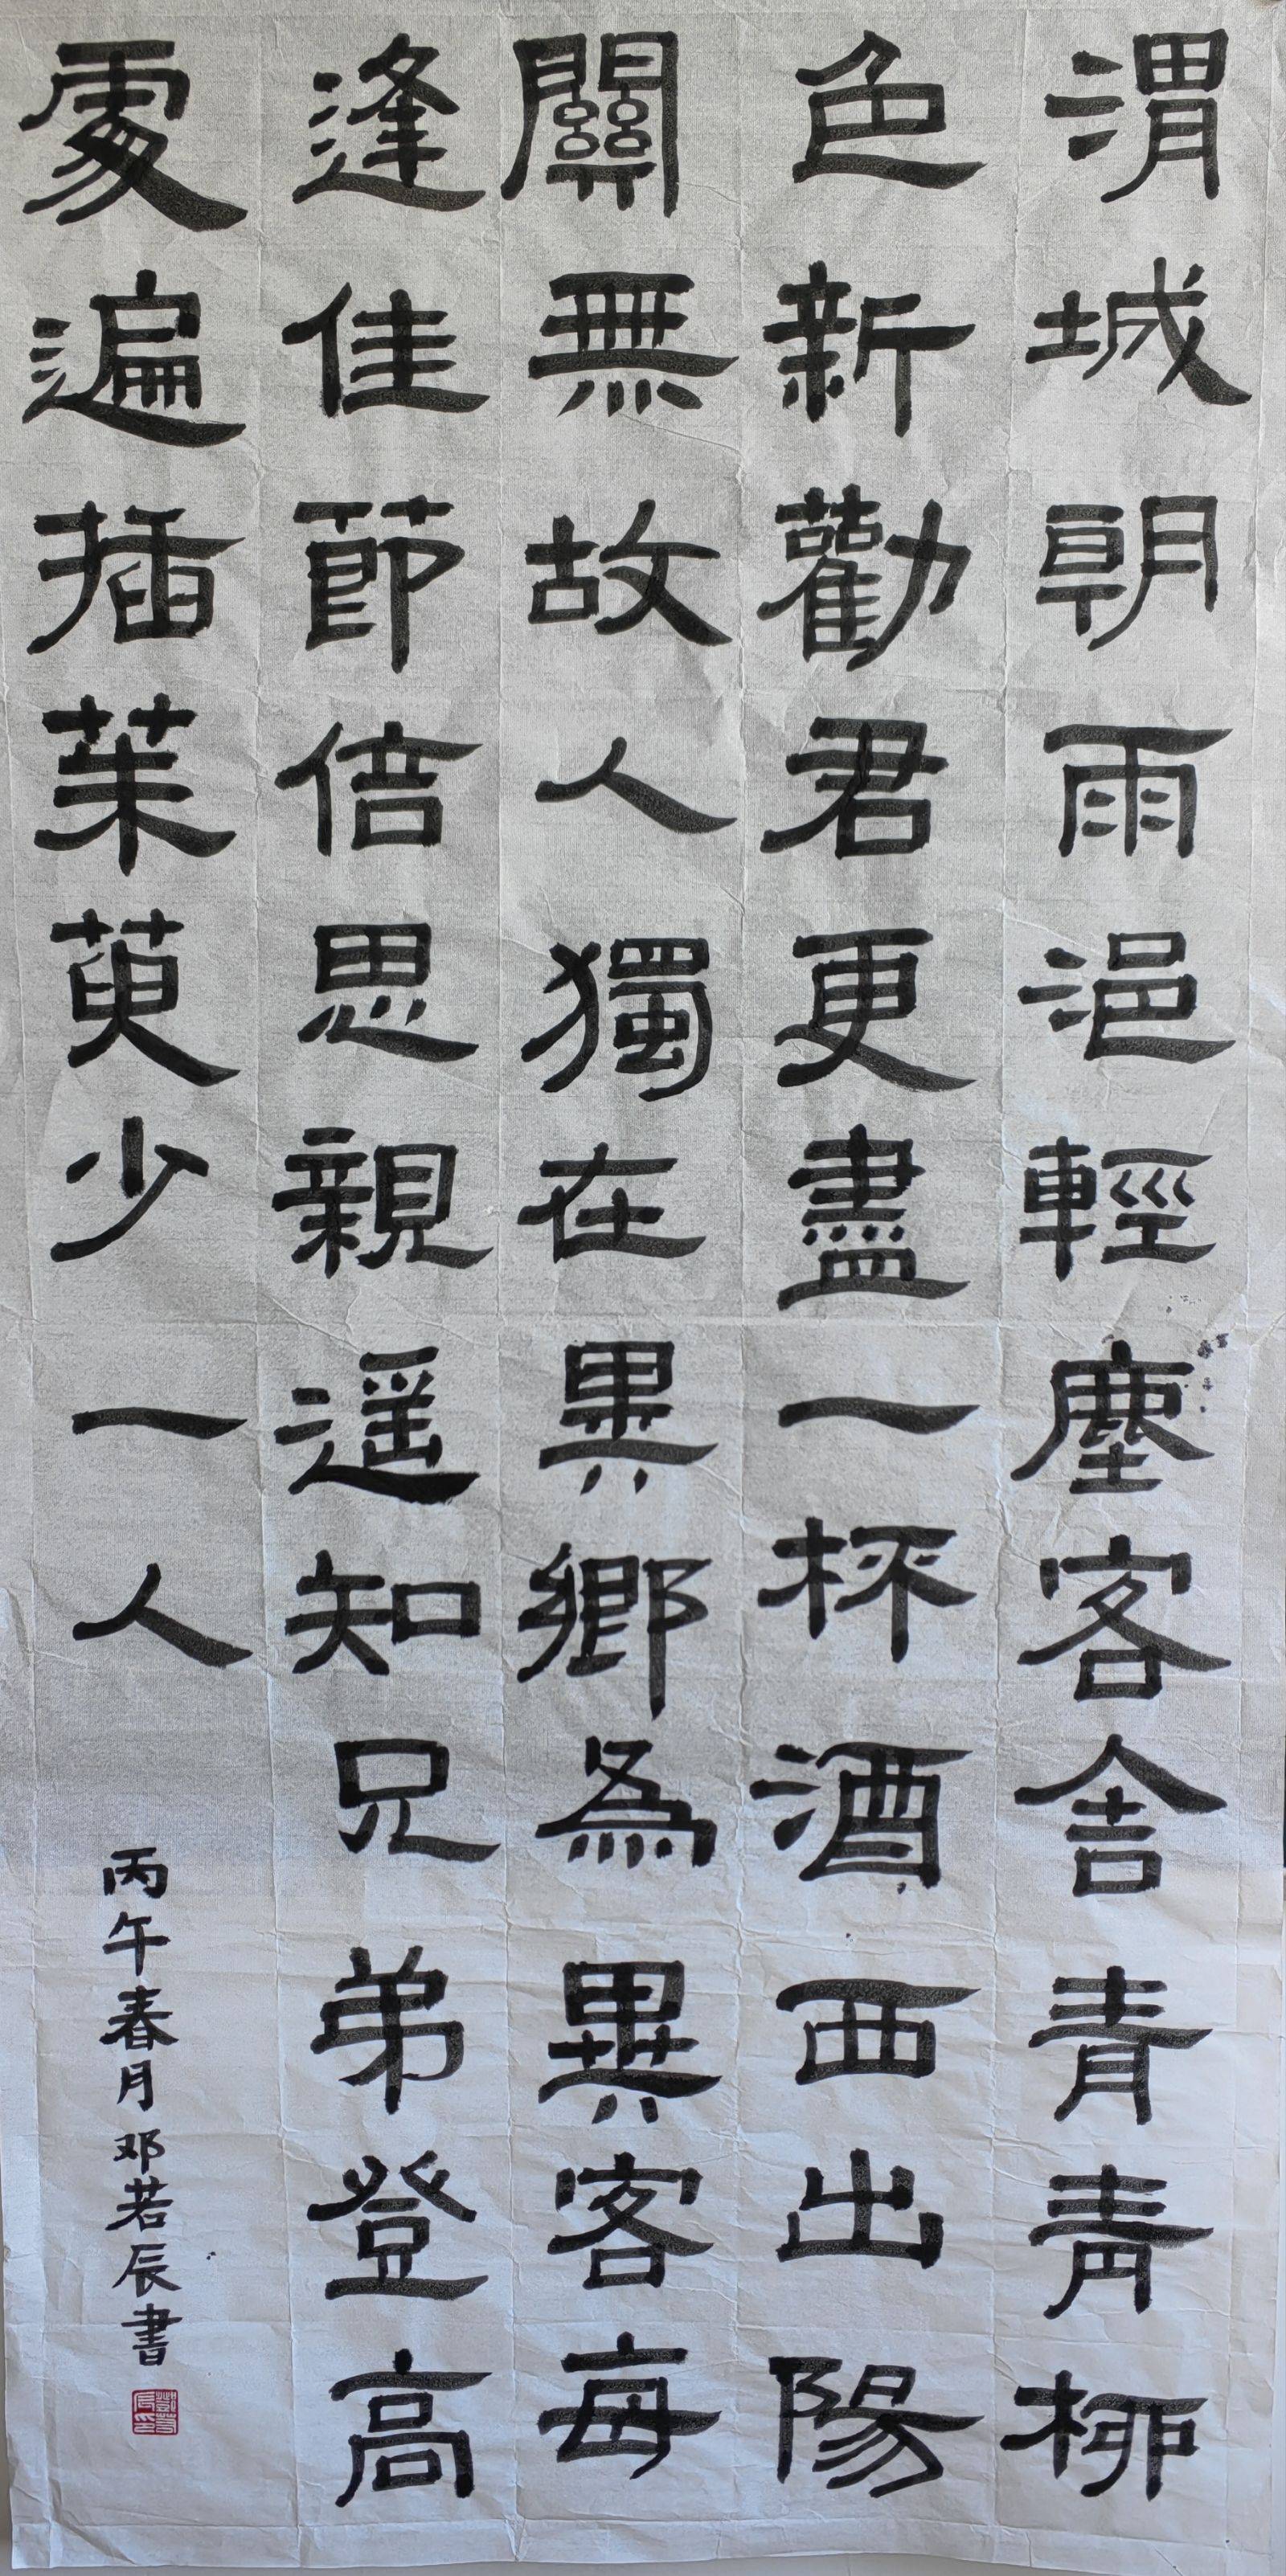 渭城朝雨浥輕塵客舍青青柳
色新勸君更盡一杯酒西出陽
關無故人獨在異鄉為異客每
逢佳節倍思親遥知兄弟登高
處遍插茱萸少一人
丙午春月邓若辰書
鄧若辰印